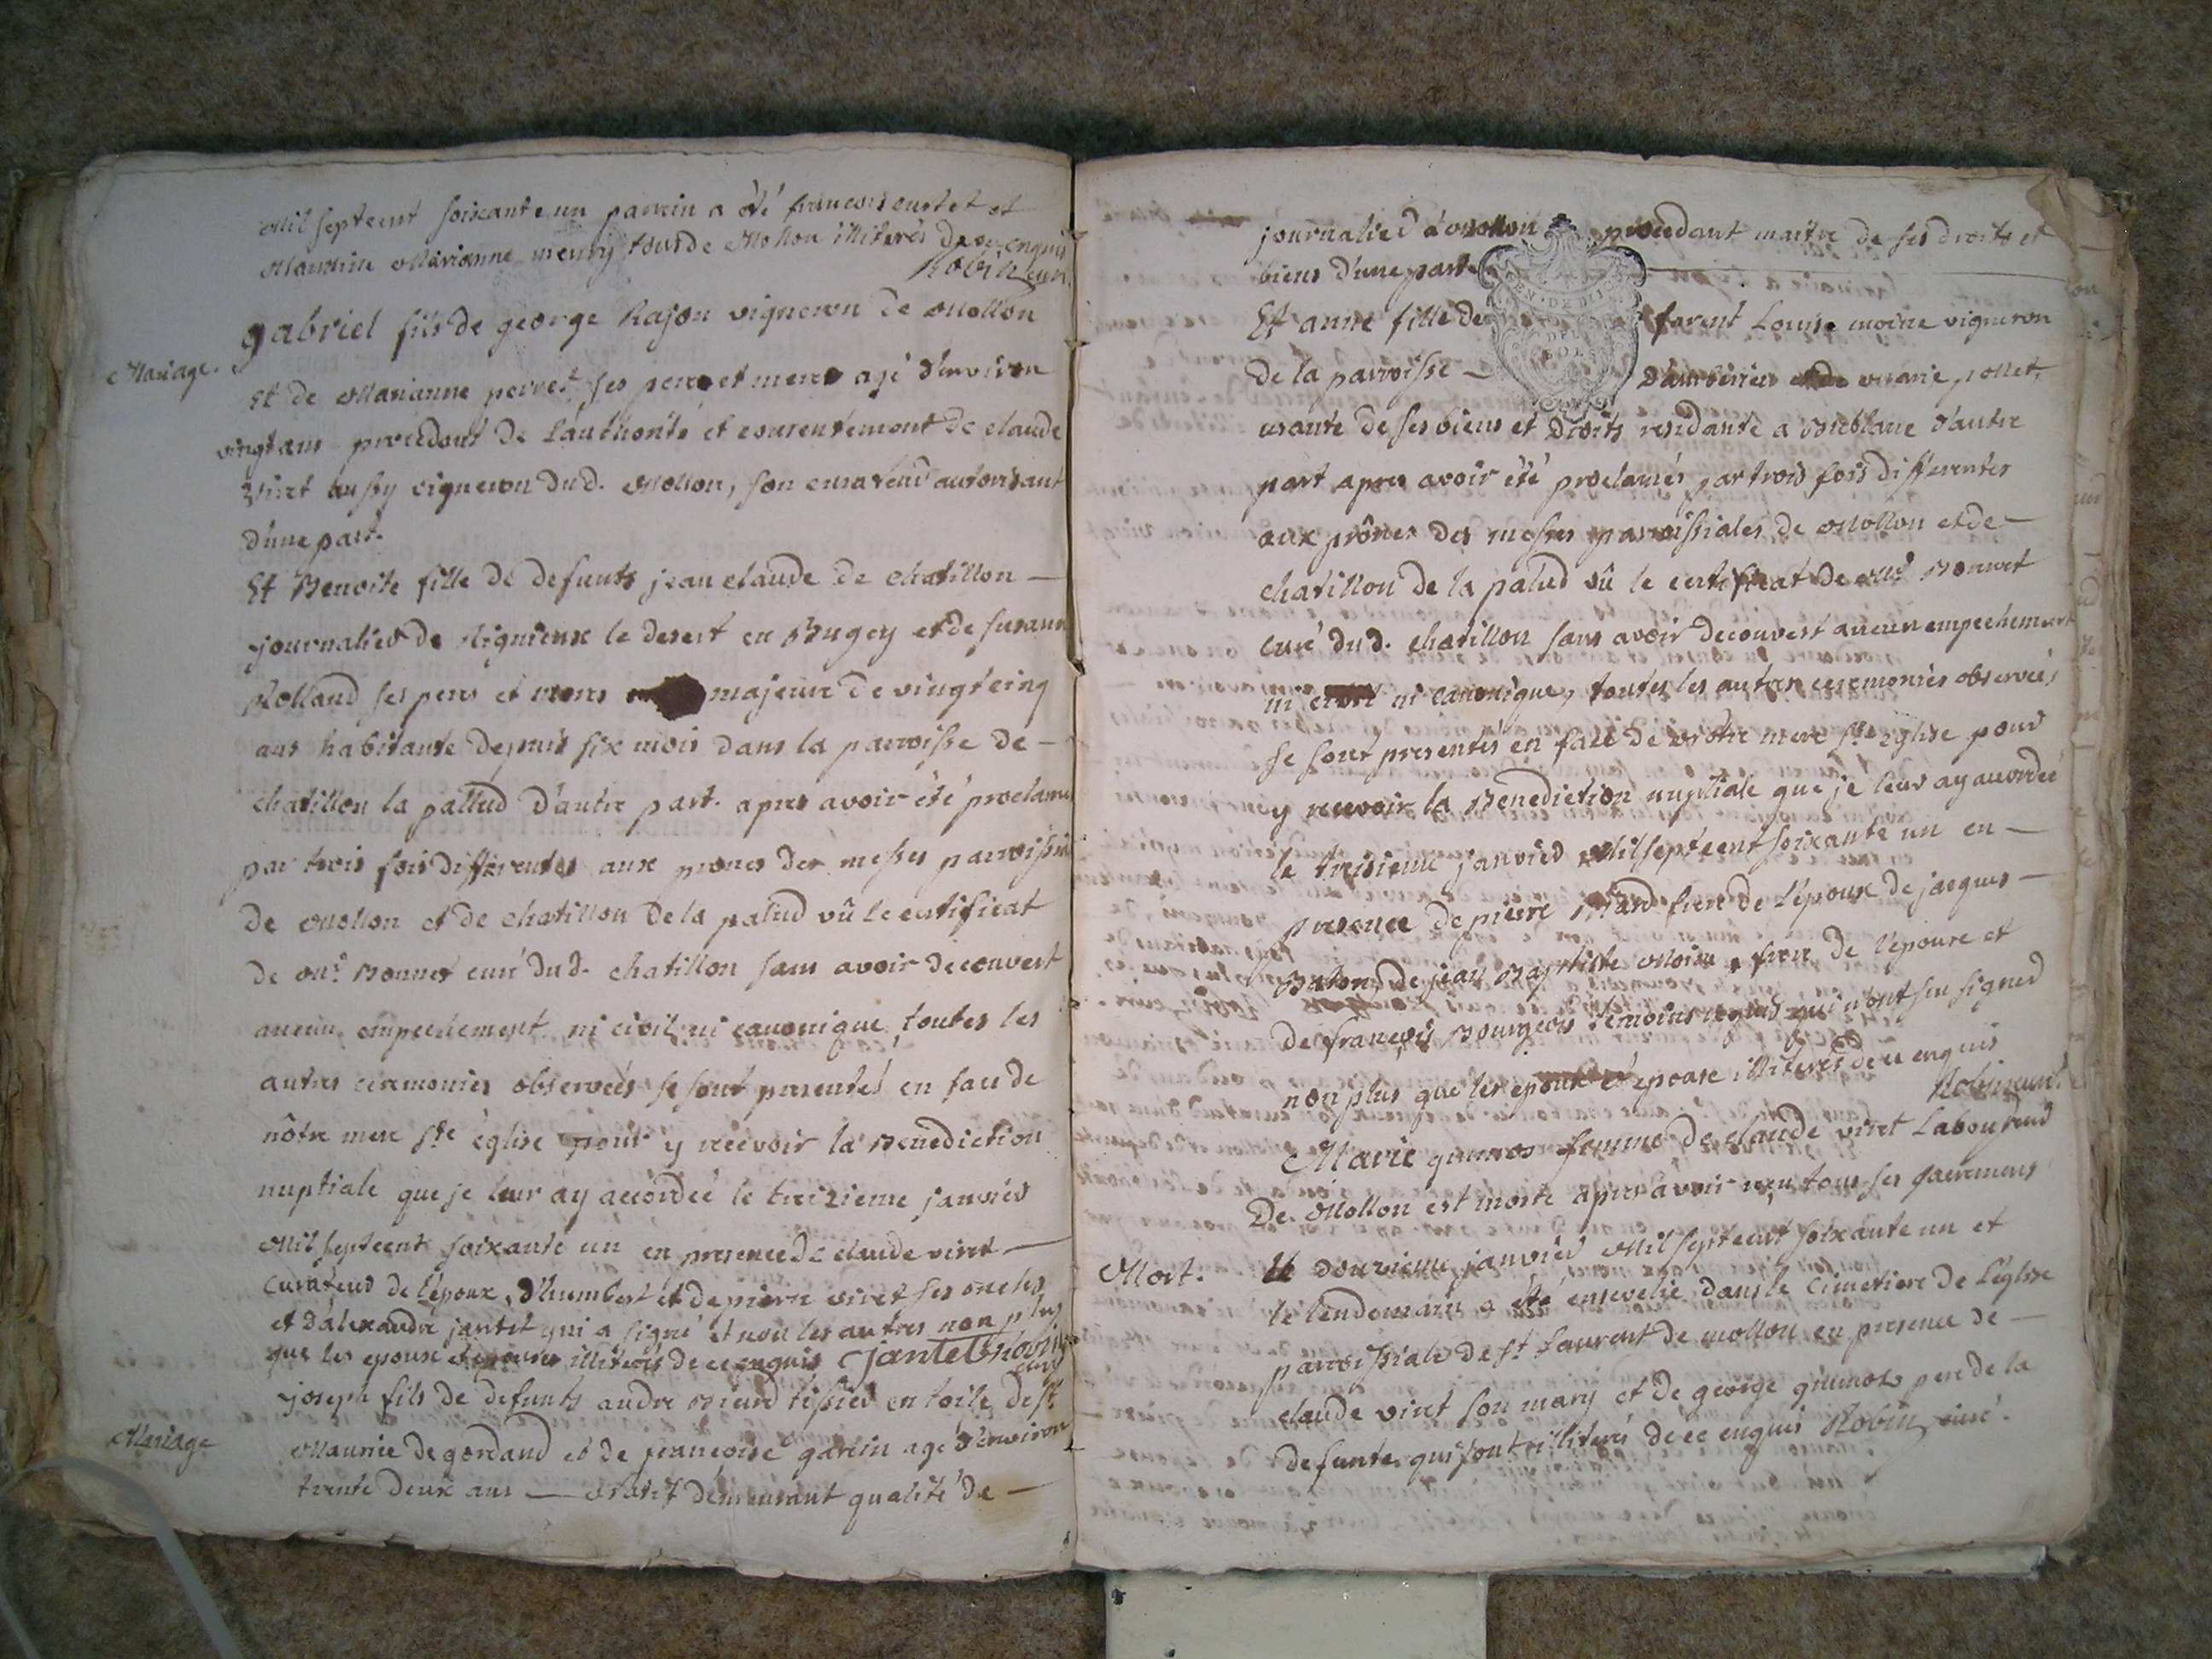 Mil septcent soixante un parrein a été francois
Marraine Marianne tous de Mollon illiterés de ce enquis
Robin curé
Mariage.
gabriel fils de george Rajon vigneron de Mollon
Et de Marianne perret ses pere et mere agé d'environ
vingt ans procedant de L'authorité et consentement de claude
Viret aussy vigneron dud. Mollon, son curateur autorisant
d'une part.
Et Benoite fille de defunts jean claude de chatillon
journalier de Rignieux le desert en Bugey et de susanne
Rolland ses pere et mere majeure de vingtcinq
ans habitante depuis six mois dans la parroisse de
chatillon la pallud d'autre part. apres avoir été proclamé
par trois fois differentes aux prones des messes parroissia
de Mollon et de chatillon de la palud vû le certificat
de Mr. Bonnet curé dud. chatillon sans avoir decouvert
aucun empechement ni civil ni canonique toutes les
autres ceremonies observeés se sont presentés en face de
nôtre mere Ste église pour y recevoir la Benediction
nuptiale que je leur ay accordeé le treizieme janvier
Mil septcent soixante un en presence de claude viret
curateur de l'epoux, d'humbert et de pierre viret ses oncles
et d'alexandre jantet qui a signé et non les autres non plus
que les epoux illiterés de ce enquis Jantet Robin
curé
Mariage
joseph fils de defunts andre tissier en toile de St
Maurice de gordand et de francoise garcin agé d'environ
trente deux ans natif demeurant qualité de
journalier a Mollon procedant maitre de ses droits et
biens d'une part
GEN. DE DIJ
DEUX
SOLS
Et anne fille de Louis moine vigneron
de la parroisse d'amberieu et de marie pollet,
usante de ses biens et Droits residante a d'autre
part apres avoir été proclamés par trois fois differentes
aux prônes des messes parroissiales de Mollon et de
chatillon de la palud vû le certificat de Mr Bonnet
curé dud. chatillon sans avoir decouvert aucun empechement
ni civil ni canonique, toutes les autres ceremonies observeés
se sont presentés en face de notre mere Ste eglise pour
y recevoir la Benediction nuptiale que je leur ay accordeé
le treisieme janvier Mil septcent soixante un en
presence de pierre frere de l'epoux de jacques
de jean Baptiste Moine frere de l'epouse et
de francois Bourgeois temoins requis qui n'ont sçu signer
non plus que les epoux et epouse illiterés de ce enquis
Robin curé.
Mort.
Marie femme de claude viret Laboureur
De Mollon est morte apres avoir reçu tous ses sacremens
le douzieme janvier Mil septcent soixante un et
le lendemain a été ensevelie dans le cimetiere de l'église
parroissiale de St Laurent de mollon en presence de
claude viret son mary et de george pere de la
defunte qui sont illiterés de ce enquis Robin, curé.